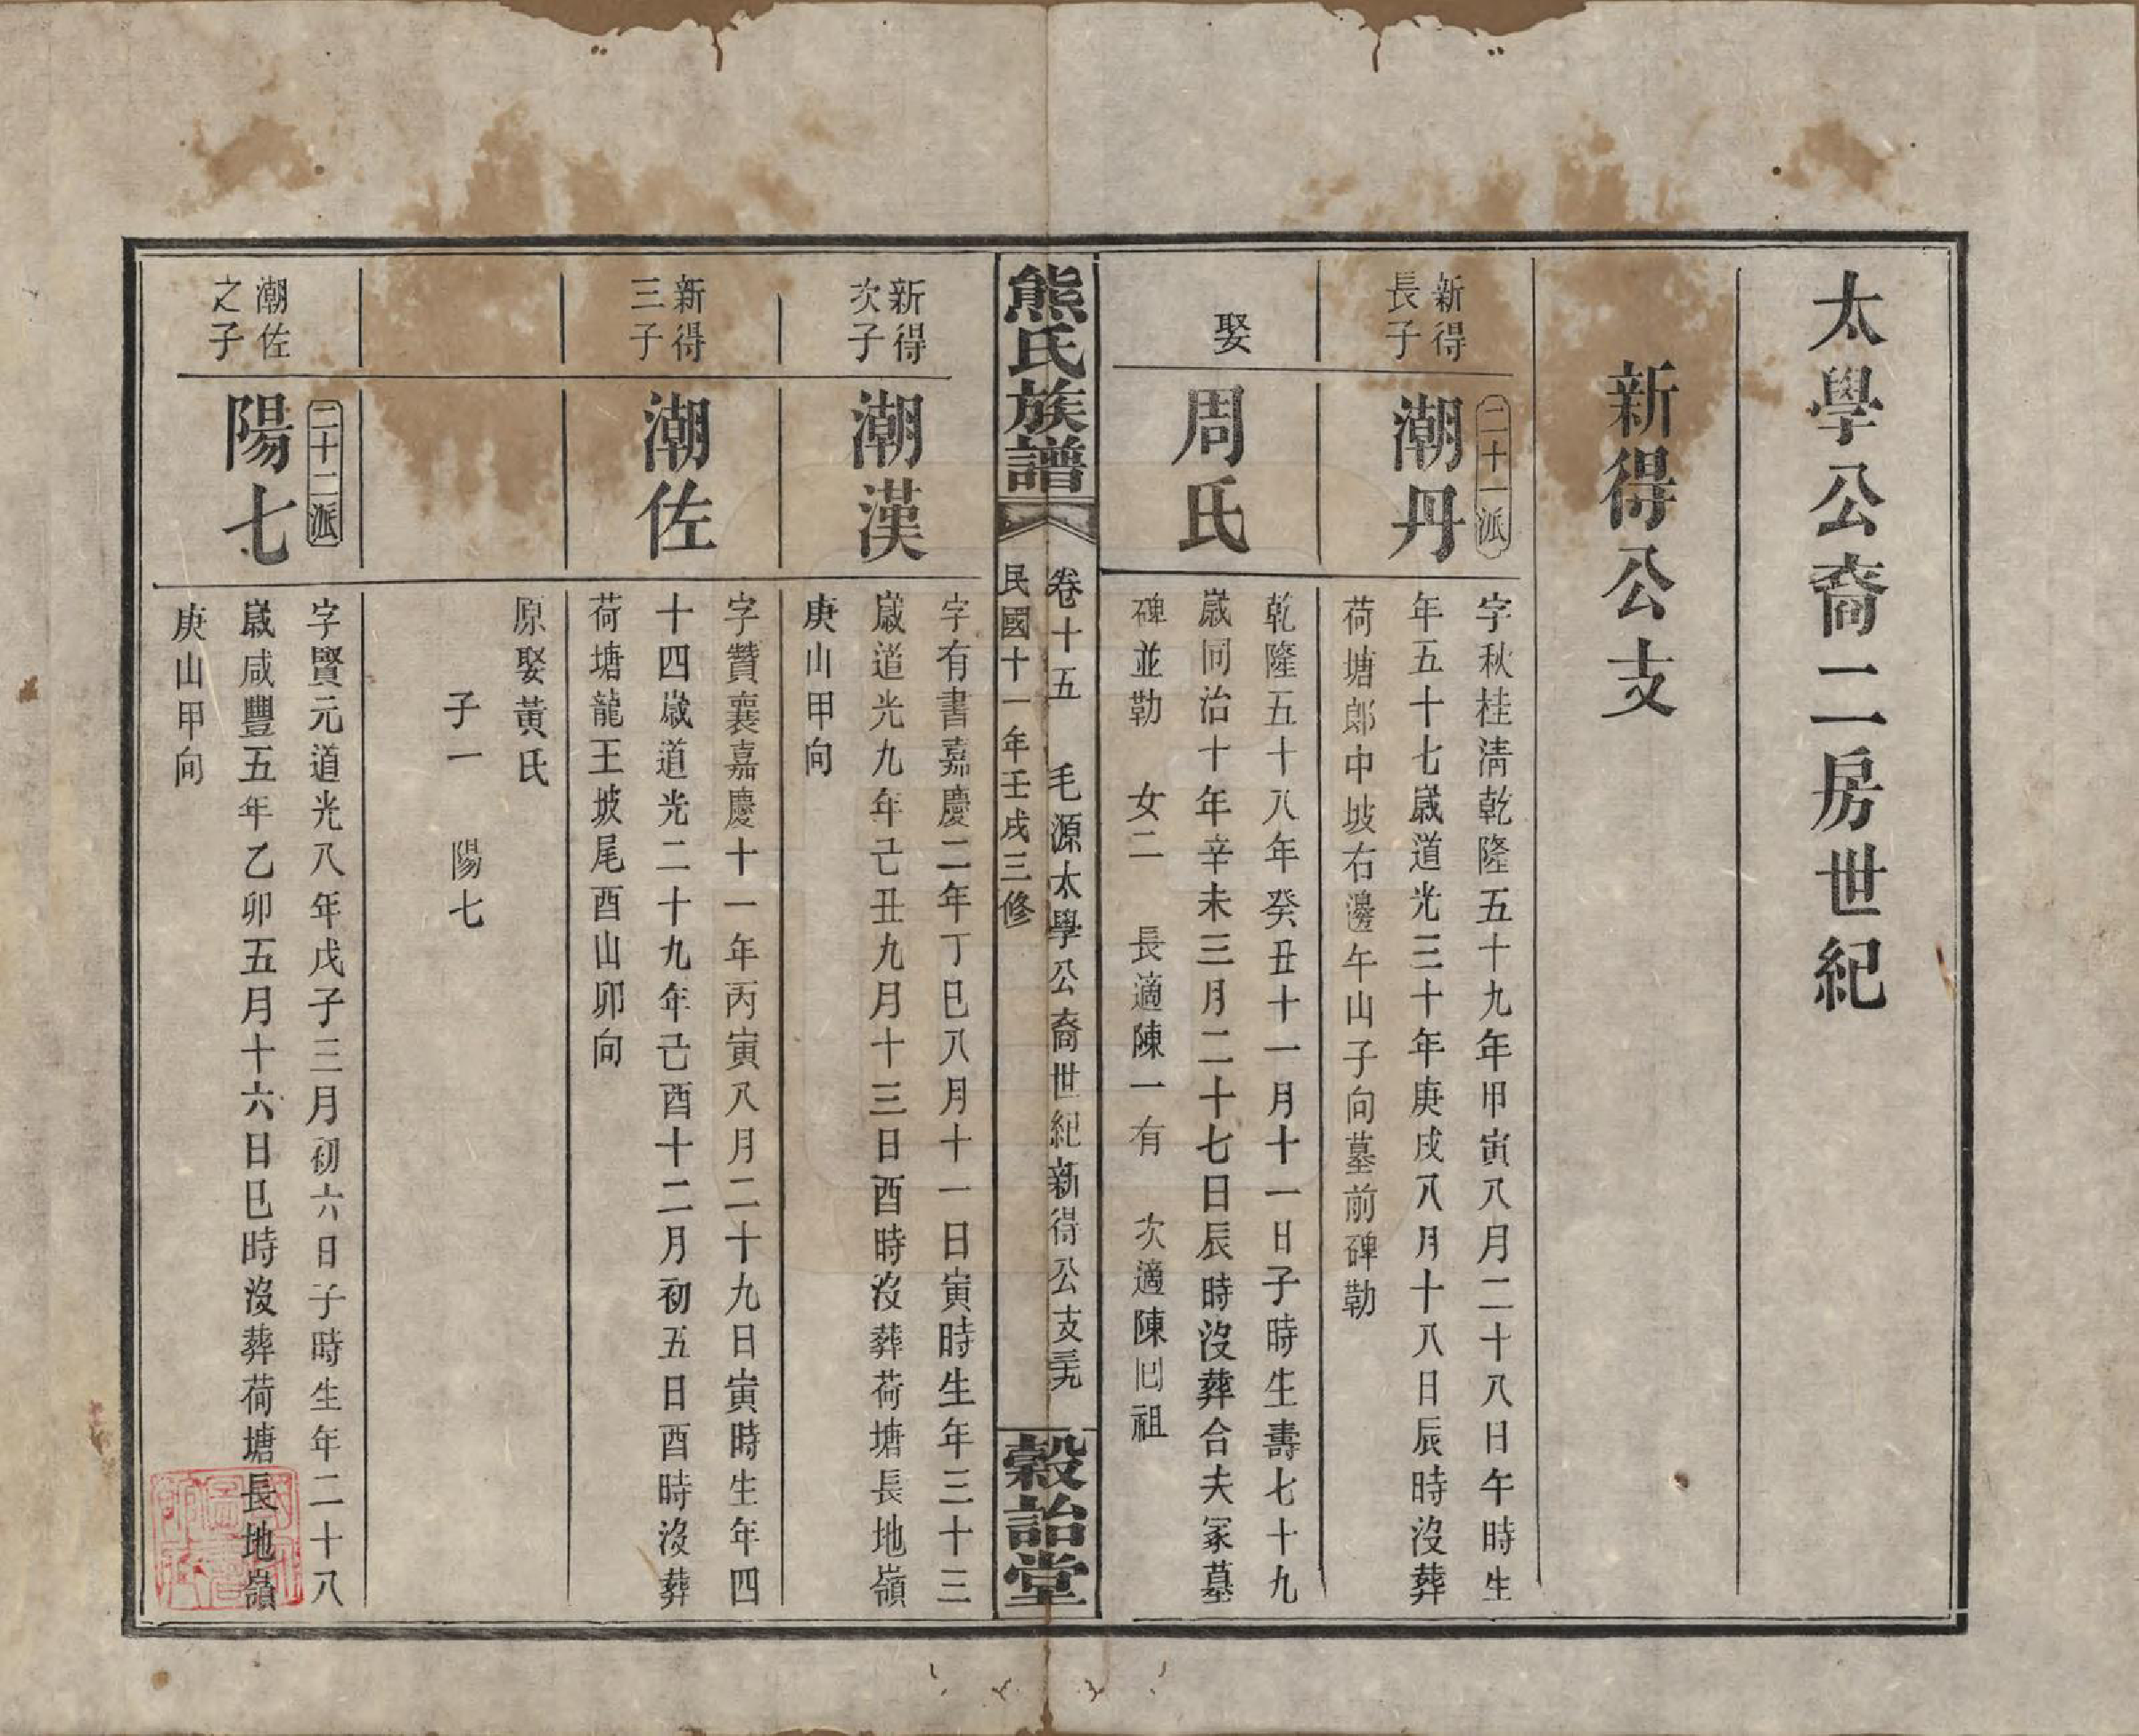 太學公裔二房世紀
新得公支
新得
長子
二十一派
潮丹
字秋桂清乾隆五十九年甲寅八月二十八日午時生
年五十七嵗道光三十年庚戌八月十八日辰時沒葬
荷塘郎中坡右邊午山子向墓前碑勒
娶
周氏
乾隆五十八年癸丑十一月十一日子時生壽七十九
嵗同治十年辛未三月二十七日辰時沒葬合夫冢墓
碑並勒 女二 長適陳一有 次適陳囘祖
熊氏族譜
卷十五 毛源太學公裔世紀新得公支
民國十一年壬戌三修
穀詒堂
新得
次子
潮漢
字有書嘉慶二年丁巳八月十一日寅時生年三十三
嵗道光九年己丑九月十三日酉時沒葬荷塘長地嶺
庚山甲向
新得
三子
潮佐
字贊襄嘉慶十一年丙寅八月二十九日寅時生年四
十四嵗道光二十九年己酉十二月初五日酉時沒葬
荷塘龍王坡尾酉山卯向
原娶黃氏
子一 陽七
潮佐
之子
二十二派
陽七
字賢元道光八年戊子三月初六日子時生年二十八
嵗咸豐五年乙卯五月十六日巳時沒葬荷塘長地嶺
庚山甲向